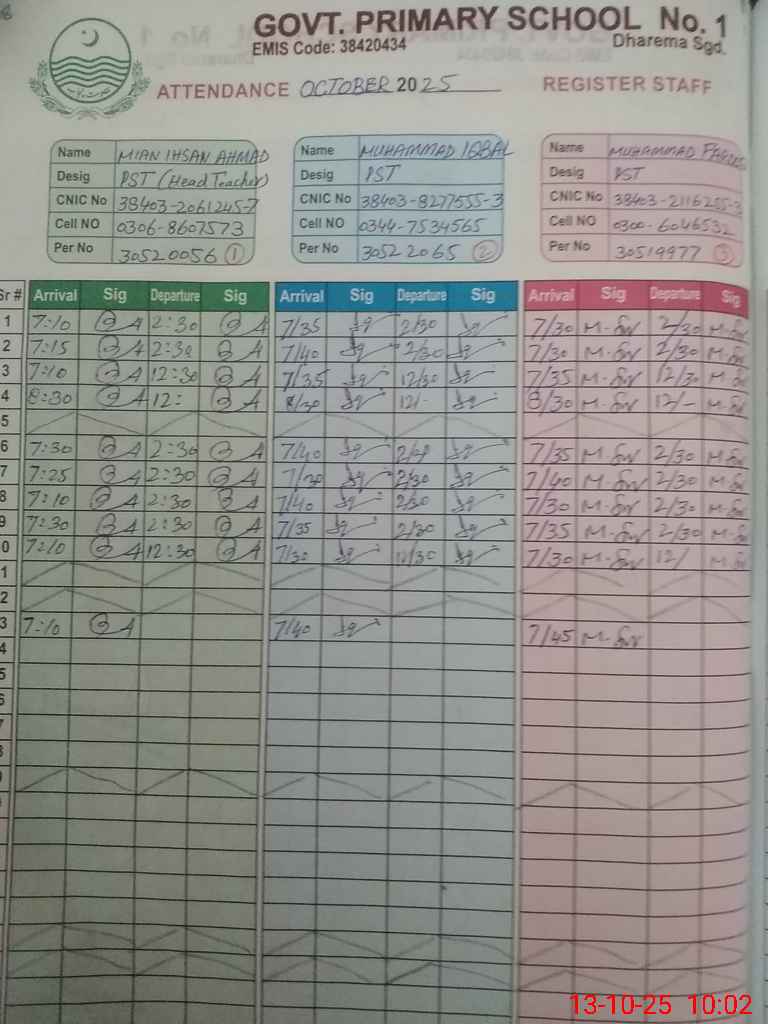 GOVT. PRIMARY SCHOOL No. 1
EMIS Code: 38420434
Dharema Sgd.
ATTENDANCE OCTOBER 2025 REGISTER STAFF
Name MIAN IHSAN AHMAD
Desig PST (Head Teacher)
CNIC No 38403-2061245-7
Cell NO 0306-8607573
Per No 30520056 1
Name MUHAMMAD IQBAL
Desig PST
CNIC No 38403-8277555-3
Cell NO 0344-7534565
Per No 30522065 2
Name MUHAMMAD
Desig PST
CNIC No 38403-2116255-3
Cell NO 0300-6046532
Per No 30519977 3
Sr # Arrival Sig Departure Sig Arrival Sig Departure Sig Arrival Sig Departure Sig
1 7:10 2:30 7/35 2/30 7/30 2/30
2 7:15 2:30 7/40 2/30 7/30 2/30
3 7:10 12:30 7/35 12/30 7/35 12/30
4 8:30 12: 8/30 12/- 8/30 12/-
5
6 7:30 2:30 7/40 7/35 2/30
7 7:25 2:30 7/30 2/30 7/40 2/30
8 7:10 2:30 7/40 2/30 7/30 2/30
9 7:30 2:30 7/35 2/30 7/35 2/30
0 7:10 12:30 7/30 12/30 7/30 12/
1
2
3 7:10 7/40 7/45
4
5
6
7
8
13-10-25 10:02